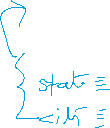 state ≡
city ≡